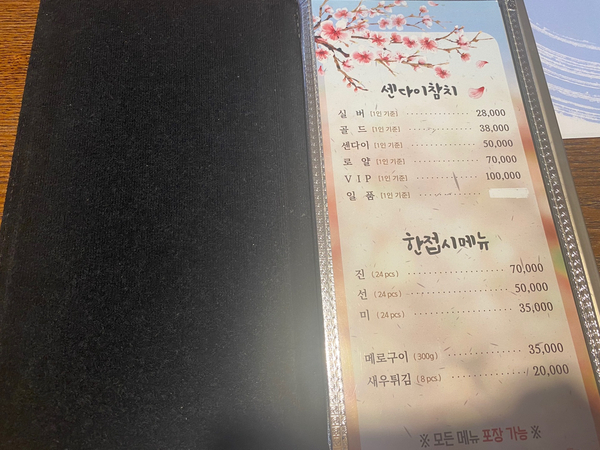 센다이참치
실 버 [1인 기준] 28,000
골 드 [1인 기준] 38,000
센다이 [1인 기준] 50,000
로 얄 [1인 기준] 70,000
V I P [1인 기준] 100,000
일 품 [1인 기준]
한접시메뉴
진 (24 pcs) 70,000
선 (24 pcs) 50,000
미 (24 pcs) 35,000
메로구이 (300g) 35,000
새우튀김 (8 pcs) 20,000
※ 모든 메뉴 포장 가능 ※